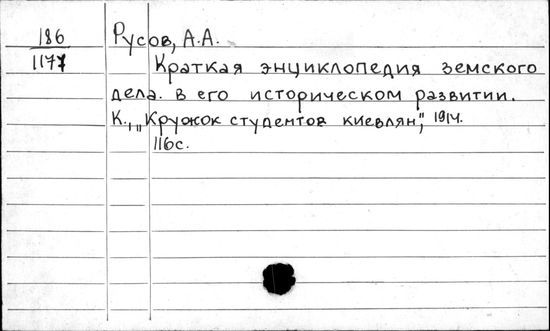 186
1177
Русов, А.А.
Краткая энциклопедия земского
дела. в его историческом развитии.
К., „Кружок студентов киевлян", 1914.
116с.